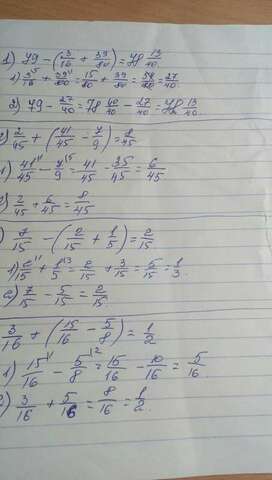 1) 79 - (3/16 + 39/80) = 78 13/40.
1) 3/16 + 39/80 = 15/80 + 39/80 = 54/80 = 27/40.
2) 79 - 27/40 = 78 40/40 - 27/40 = 78 13/40.
2) 2/45 + (41/45 - 7/9) = 8/45
1) 41/45 - 7/9 = 41/45 - 35/45 = 6/45
2) 2/45 + 6/45 = 8/45
7/15 - (2/15 + 1/5) = 2/15
1) 2/15 + 1/5 = 2/15 + 3/15 = 5/15 = 1/3.
2) 7/15 - 5/15 = 2/15.
3/16 + (15/16 - 5/8) = 1/2
1) 15/16 - 5/8 = 15/16 - 10/16 = 5/16
2) 3/16 + 5/16 = 8/16 = 1/2.